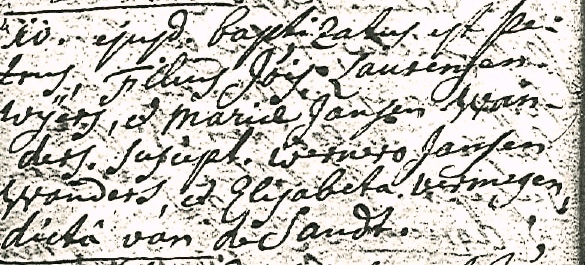 ejusd. baptizatus est Pe-
trus, Filius Jois Laurensen
Wÿers, et Mariæ Jansen Wan-
ders. suscept. Wernero Jansen
Wanders, et Elisabeta Vermegen,
dictâ van de Sandt.